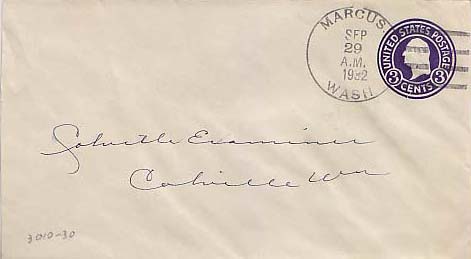 MARCUS
SEP
29
A.M.
1932
WASH
UNITED STATES POSTAGE
3 3
CENTS
Colville Examiner
Colville Wn
3010-30